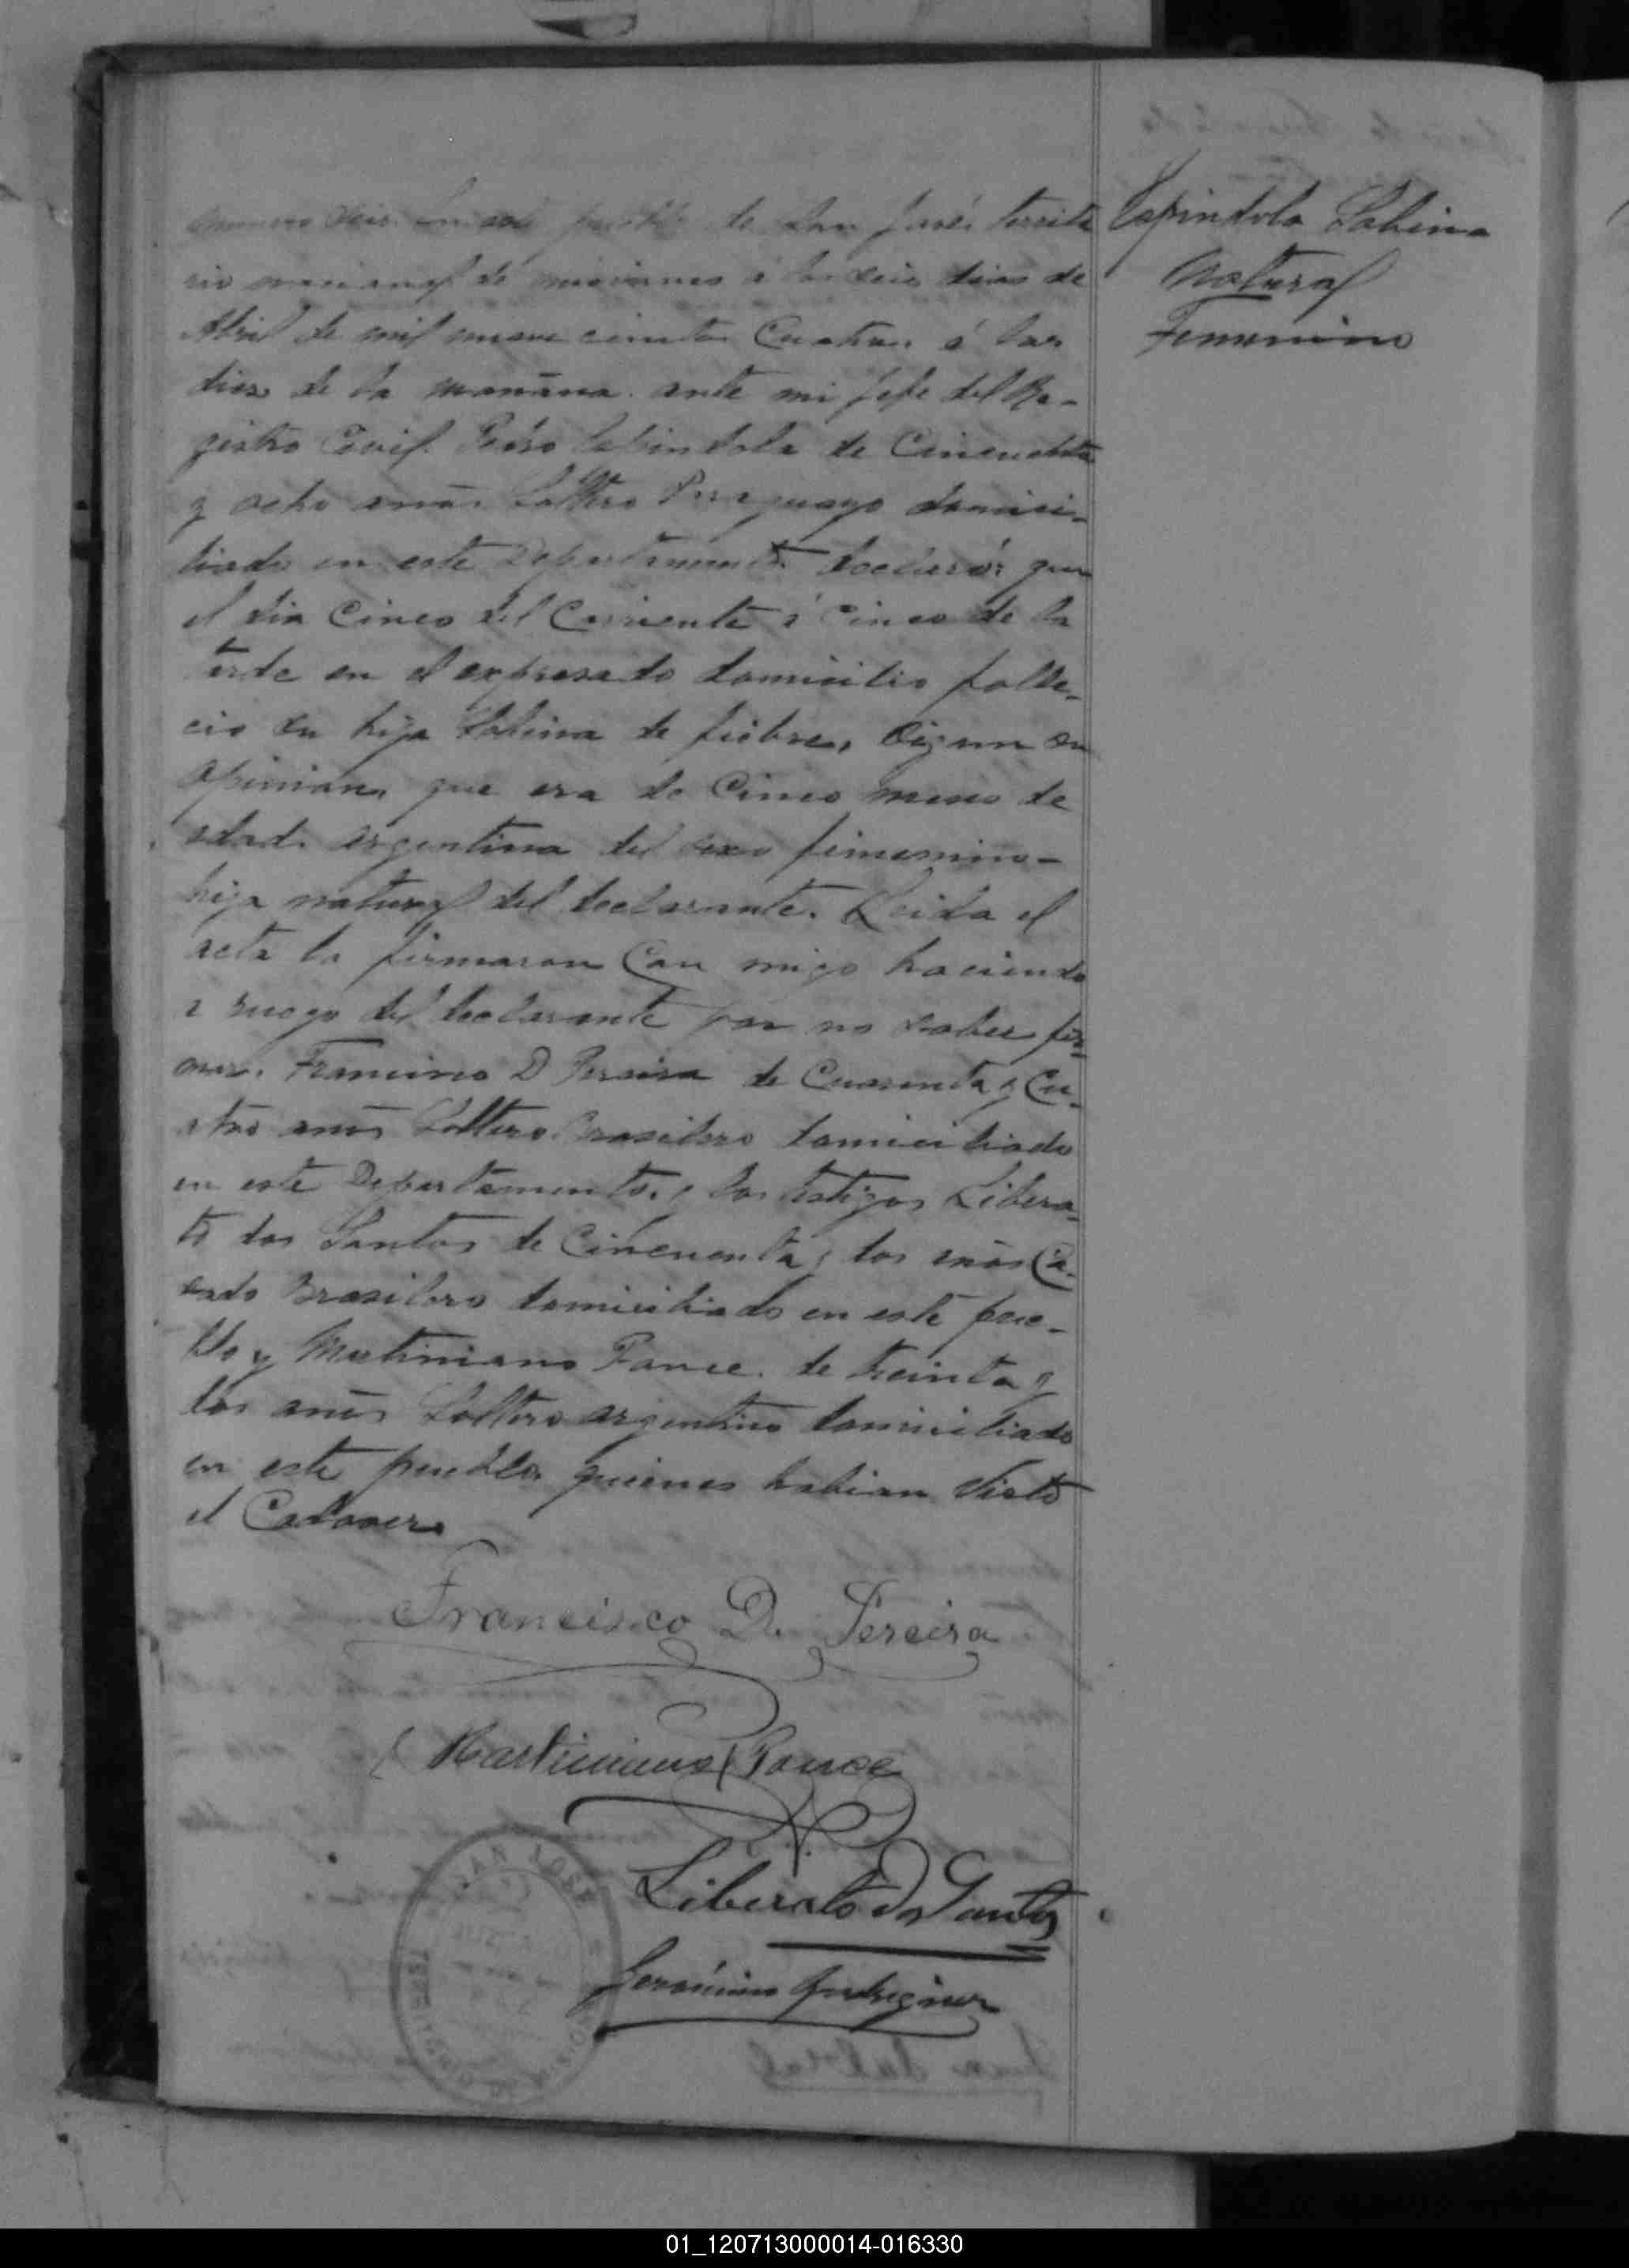 Numero Seis. En este pueblo de San José, territo
rio nacional de misiones á los seis dias de
Abril de mil nueve cientos Cuatro. á las
diez de la mañana. ante mi Jefe del Re-
gistro Civil. Pedro Espindola de Cincuenta
y ocho años Soltero Paraguayo domici-
liado en este Departamento declaró: que
el dia Cinco del Corriente á cinco de la
tarde en el expresado domicilio falle-
cio su hija Sabina de fiebre, Cigun su
opinion. que era de Cinco meses de
edad. argentina del sexo fimenino-
hija natural del declarante. Leida el
acta la firmaron Con migo haciendo
a ruego del declarante por no saber fir-
mar. Francisco D Pereira de Cuarenta y Cu-
atro años Soltero Brasilero domiciliado
en este Departamento. y los testigos Libera-
to dos Santos de Cincuenta y dos años Ca-
sado Brasilero domiciliado en este pue-
blo y Martiniano Ponce. de treinta y
dos años Soltero argentino domiciliado
en este pueblo. quienes habian visto
el Cadaver.
Espindola Sabina
Natural
Femenino
Francisco D. Pereira
Martiniano Ponce
Liberato dos Santos
SAN JOSE
Gerónimo
01_120713000014-016330